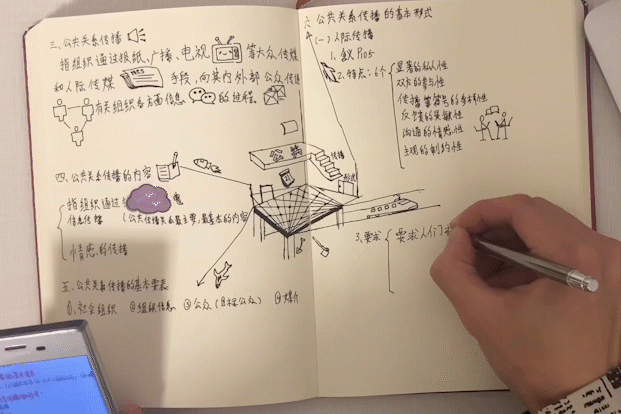 三、公共关系传播
指组织通过报纸、广播、电视 等大众传媒
和人际传媒 手段,向其内外部公众传递
有关组织各方面信息 的过程
四、公共关系传播的内容
指组织通过
信息传播 (公共传播关系最主要,最基本的内容
情感的传播
五、公共关系传播的基本要素
①、社会组织 ②组织信息 ③公众(目标公众) ④媒介
公共关系传播的基本形式
(一)人际传播
2、特点:6个
显著的私人性
双方的参与性
传播 符号的多样性
反馈的灵敏性
沟通的情感性
主观的制约性
公共
传播
形式
3、要求
要求人们
NEWS